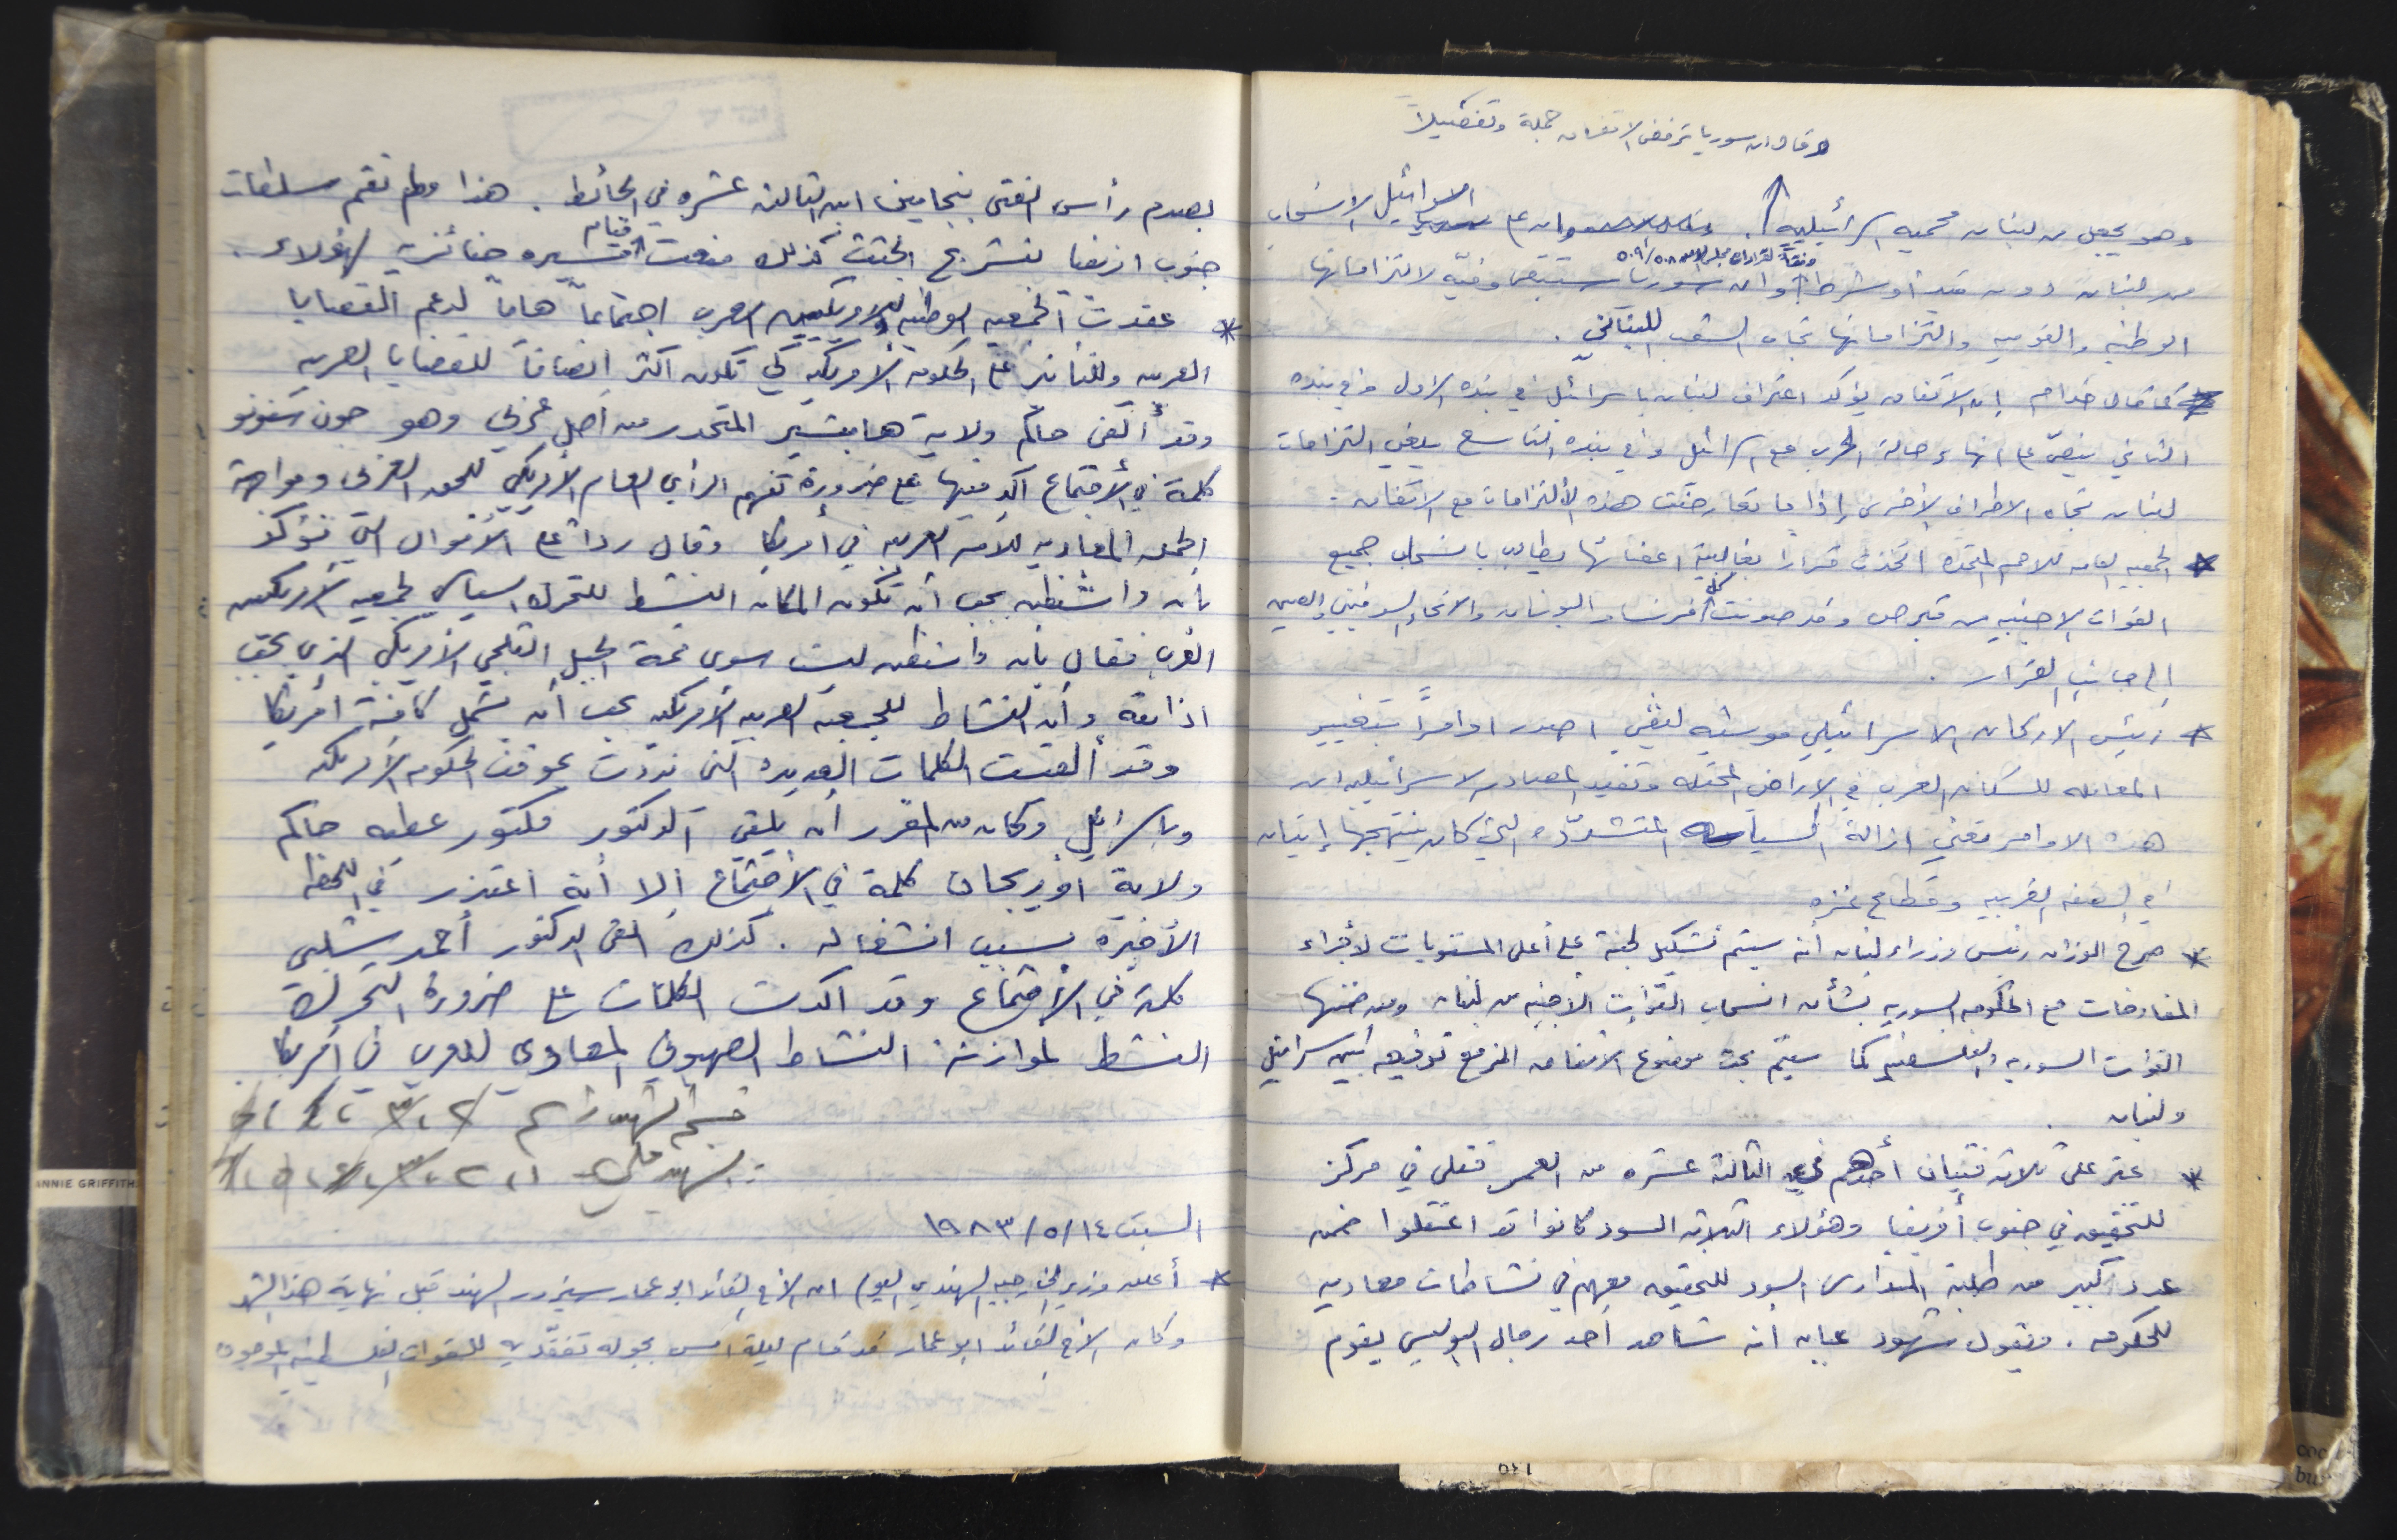 وقال ان سوريا ترفض الاتفاق جملة وتفصيلاً
وهو يجعل من لبنان محميه اسرائيليه. وان على الاسرائيل الانسحاب
من لبنان دون قيد أو شرط وفقاً لقرارات مجلس الامن ٥٠٨/٥٠٩ وان سوريا ستبقى وفيّه لالتزاماتها
الوطنيه والقوميه والتزاماتها تجاه الشعب اللبناني.
كما قال خدام إن الاتفاق يؤكد اعتراف لبنان باسرائيل في بنده الاول وفي بنده
الثاني ينصّ على انهاء حالة الحرب مع اسرائيل وفي بنده التاسع يلغي التزامات
لبنان تجاه الاطراف الاخرى إذا ما تعارضت هذه الألتزامات مع الاتفاق.
* الجمعيه العامه للامم المتحده اتخذت قراراً بغالبية اعضائها يطالب بانسحاب جميع
القوات الاجنبيه من قبرص وقد صوتت كل فرنسا واليونان والاتحاد السوفيتي والصين
إلى جانب القرار.
* رئيس الاركان الاسرائيلي موشيه ليفي اصدر اوامراً بتغيير
المعامله للسكان العرب في الاراضي المحتله وتفيد المصادر الاسرائيليه ان
هذه الاوامر تعني ازالة السياسه المتشدّده التي كان ينتهجها إيتان
في الضفه الغربيه وقطاع غزه
* صرح الوزان رئيس وزراء لبنان أنه سيتم تشكيل لجنة على أعلى المستويات لأجراء
المفاوضات مع الحكومه السوريه بشأن انسحاب القوات الأجنبيه من لبنان ومن ضمنها
القوات السوريه والفلسطينيه كما سيتم بحث موضوع الاتفاق المزمع توقيعه بين اسرائيل
ولبنان.
* عثر على ثلاثة فتيان أحدهم في الثالثة عشره من العمر قتلى في مركز
للتحقيق في جنوب أفريقيا وهؤلاء الثلاثه السود كانوا قد اعتقلوا ضمن
عدد كبير من طلبة المدارس السود للتحقيق معهم في نشاطات معاديه
للحكومه. وتقول شهود عيان انه شاهد أحد رجال البوليس يقوم
بصدم رأس الفتى بنجامين ابن الثالثه عشره في الحائط. هذا ولم تقم سلطات
جنوب افريقيا بتشريح الجثث كذلك منعت قيام مسيره جنائزيه لهؤلاء.
* عقدت الجمعيه الوطنيه للامريكيين العرب اجتماعاً هاماً لدعم القضايا
العربيه وللتأثير على الحكومه الأمريكيه كي تكون أكثر انصافاً للقضايا العربيه
وقد ألقى حاكم ولاية هامبشير المتحدر من أصل عربي وهو جون سنونو
كلمة في الأجتماع أكد فيها على ضرورة تفهم الرأي العام الأمريكي للحق العربي ومواجهة
الحمله المعاديه للأمه العربيه في أمريكا وقال رداً على الأقوال التي تؤكد
بأن واشنطن يجب أن تكون المكان النشط للتحرك السياسي لجمعيه الأمريكيين
العرب فقال بأن واشنطن ليست سوى قمة الجبل الثلجي الأمريكي الذي يجب
اذابته وأن النشاط للجمعيه العربيه الأمريكيه يجب أن يشمل كافة أمريكا
وقد ألقيت الكلمات العديده التي نددت بموقف الحكومه الأمريكيه
وباسرائيل وكان من المقرر أن يلقي الدكتور فكتور عطيه حاكم
ولاية اوريجان كلمة في الأجتماع إلا أنه اعتذر في اللحظه
الأخيره بسبب انشغاله. كذلك ألقى الدكتور أحمد شلبي
كلمة في الأجتماع وقد أكدت الكلمات على ضرورة التحرك
النشط لموازنة النشاط الصهيوني المعادي للعرب في أمريكا.
السبت ١٤/٥/١٩٨٣
* أعلن وزير الخارجيه الهندي اليوم ان الأخ القائد ابو عمار سيزور الهند قبل نهاية هذا الشهر
وكان الأخ القائد ابو عمار قد قام ليلة امس بجوله تفقّديه للقوات الفلسطينيه الموجوده
NNIE GRIFFITH